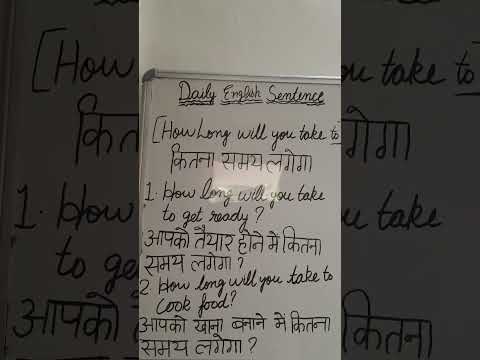 Daily English Sentence
[How Long will you take to]
कितना समय लगेगा
1. How long will you take
to get ready?
आपको तैयार होने में कितना
समय लगेगा?
2. How long will you take to
cook food?
आपको खाना बनाने में कितना
समय लगेगा?